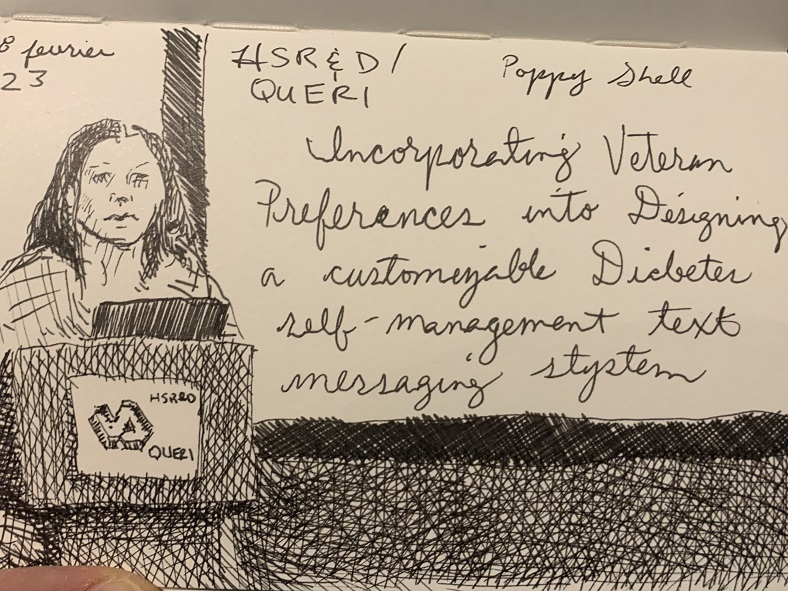 8 fevrier
23
HSR&D/
QUERI
Poppy Shell
Incorporating Veteran
Preferences into Designing
a customizable Diabetes
self-management text
messaging stystem
HSR&D
QUERI